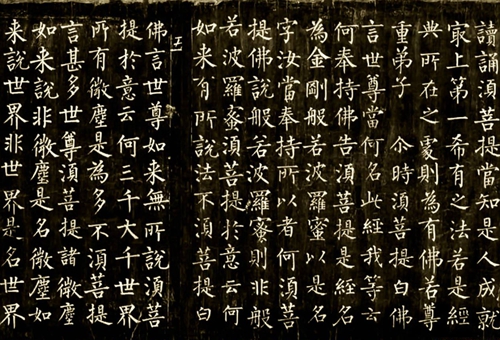 讀誦湏菩提當知是人成就
冣上第一希有之法若是經
典所在之處則為有佛若尊
重弟子 尒時湏菩提白佛
言世尊當何名此經我等云
何奉持佛告湏菩提是經名
為金剛般若波羅蜜以是名
字汝當奉持所以者何湏菩
提佛說般若波羅蜜則非般
若波羅蜜湏菩提於意云何
如来有所說法不湏菩提白
五
佛言世尊如来無所說湏菩
提於意云何三千大千世界
所有微塵是為多不湏菩提
言甚多世尊湏菩提諸微塵
如来說非微塵是名微塵如
来說世界非世界是名世界